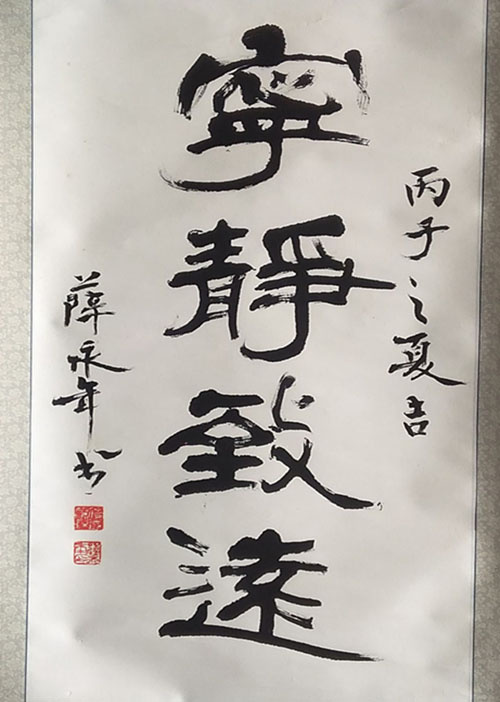 丙子之夏吉
寧靜致遠
薛永年书